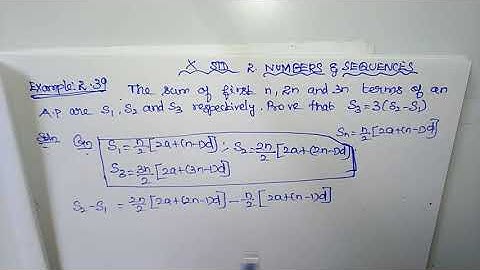 X STD 2. NUMBERS & SEQUENCES
Example: 2.39 The sum of first n, 2n and 3n terms of an
A.P are S₁, S₂ and S₃ respectively. Prove that S₃ = 3(S₂-S₁)
Sn = n/2 [2a+(n-1)d]
Soln Gn S₁ = n/2 [2a+(n-1)d] ; S₂ = 2n/2 [2a+(2n-1)d]
S₃ = 3n/2 [2a+(3n-1)d]
S₂-S₁ = 2n/2 [2a+(2n-1)d] - n/2 [2a+(n-1)d]